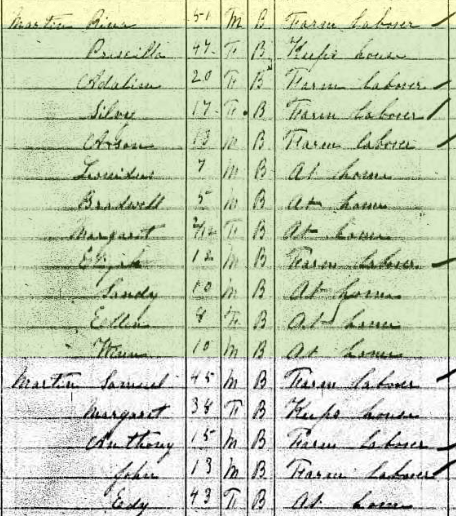 Martin 51 M B Farm laborer
Priscilla 47 F B Keeps house
Adaline 20 F B Farm laborer
Silvy 17 F B Farm laborer
13 M B Farm laborer
7 M B At home
Bradwell 5 M B At home
Margaret 2/12 F B At home
12 M B Farm laborer
Sandy 10 M B At home
8 F B At home
10 M B At home
Martin Samuel 45 M B Farm laborer
Margaret 38 F B Keeps house
Anthony 15 M B Farm laborer
John 13 M B Farm laborer
Edy 43 F B At home